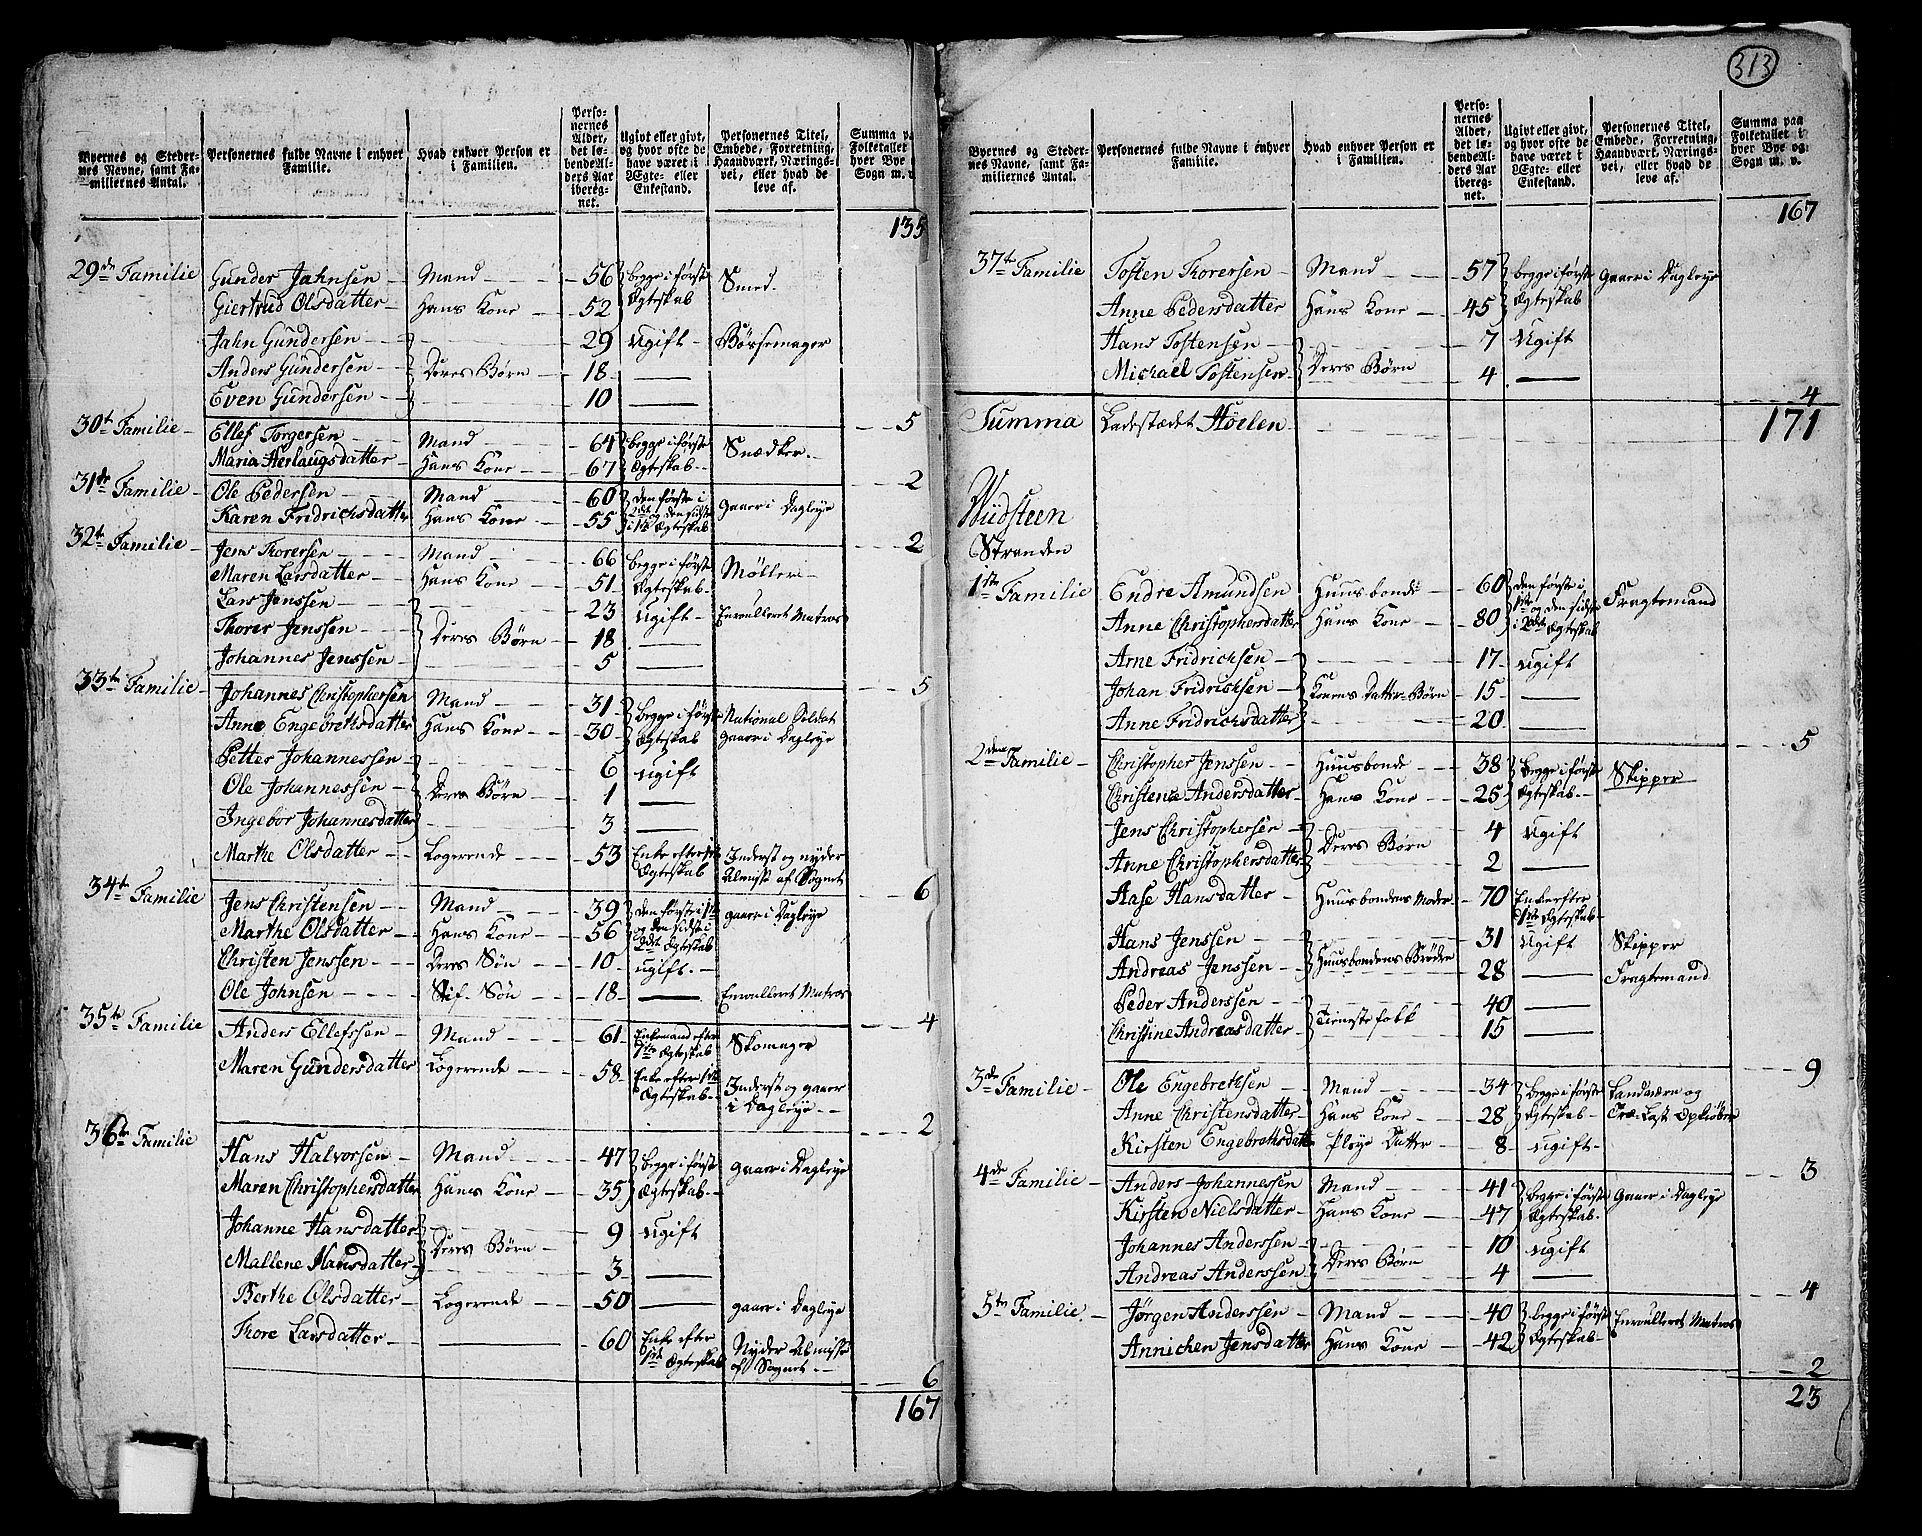 Byernes og Steder-
nes Navne, samt Fa-
miliernes Antal.
Personernes fulde Navne i enhver
Familie.
Hvad enhver Person er
i Familien.
Perso-
nernes
Alder,
det lø-
bende Al-
ders Aar
ibereg-
net.
Ugivt eller givt,
og hvor ofte de
have været i
Ægte- eller
Enkestand.
Personernes Titel,
Embede, Forretning,
Haandværk, Nærings-
vei, eller hvad de
leve af.
Summa pa
Folketallet
hver Bye
Sogn m. v.
135
29de Familie Gunder Jahnsen Mand 56 begge i første Ægteskab Smed.
Giertrud Olsdatter Hans Kone 52
Jahn Gundersen 29 Ugift Børsemager
Anders Gundersen Deres Børn 18 —
Even Gundersen 10 —
5
30te Familie Ellef Torgersen Mand 64 begge i første Ægteskab Snædker.
Maria Herlaugsdatter Hans Kone 67
2
31te Familie Ole Pedersen Mand 60 den første i 2det og den sidste i 1te Ægteskab Gaaer i Dagleye
Karen Fridrichsdatter Hans Kone 55
2
32te Familie Jens Thorersen Mand 66 begge i første Ægteskab Møller
Maren Larsdatter Hans Kone 51
Lars Jenssen 23 Ugift Enroulleret Matros
Thorer Jenssen Deres Børn 18 —
Johannes Jenssen 5 —
5
33te Familie Johannes Christophersen Mand 31 begge i første Ægteskab National Soldat gaaer i Dagleye
Anne Engebrethsdatter Hans Kone 30
Petter Johannessen 6 ugift
Ole Johannessen Deres Børn 1 —
Ingebor Johannesdatter 3 —
Marthe Olsdatter Logerende 53 Enke efter 1ste Ægteskab Inderst og nyder Almisse af Sognet
6
34te Familie Jens Christensen Mand 39 den første i 1te og den sidste i 2det Ægteskab gaaer i Dagleye
Marthe Olsdatter Hans Kone 56
Christen Jenssen Deres Søn 10 ugift.
Ole Johnsen Stif-Søn 18 — Enroulleret Matros
4
35te Familie Anders Ellefssen Mand 61 Enkemand efter 1te Ægteskab Skomager
Maren Gundersdatter Logerende 58 Enke efter 1ste Ægteskab Inderst og gaaer i Dagleye
2
36te Familie Hans Halvorsen Mand 47 begge i første Ægteskab gaaer i Dagleye
Maren Christophersdatter Hans Kone 35
Johanne Hansdatter 9 Ugift
Mallene Hansdatter Deres Børn 3 —
Berthe Olsdatter Logerende 50 — gaaer i Dagleye
Thore Larsdatter — 60 Enke efter 1ste Ægteskab Nyder Almisse af Sognet
6
167
313
Byernes og Steder-
nes Navne, samt Fa-
miliernes Antal.
Personernes fulde Navne i enhver
Familie.
Hvad enhver Person er
i Familien.
Perso-
nernes
Alder,
det lø-
bende Al-
ders Aar
ibereg-
net.
Ugivt eller givt,
og hvor ofte de
have været i
Ægte- eller
Enkestand.
Personernes Titel,
Embede, Forretning,
Haandværk, Nærings-
vei, eller hvad de
leve af.
Summa paa
Folketallet i
hver Bye og
Sogn m. v.
167
37te Familie Tosten Thorersen Mand 57 begge i første Ægteskab Gaaer i Dagleye
Anne Pedersdatter Hans Kone 45
Hans Tostensen 7 Ugift
Michael Tostensen Deres Børn 4 —
4
Summa Ladestædet Høelen 171
Widsteen
Stranden
1ste Familie Endre Amundsen Huusbonde 60 den første i 1ste og den sidste i 2det Ægteskab Fragtemand
Anne Christophersdatter Hans Kone 80
Arne Fridrichsen 17 ugift
Johan Fridrichsen Konens Datter-Børn 15 —
Anne Fridrichsdatter 20 —
5
2den Familie Christopher Jenssen Huusbonde 38 begge i første Ægteskab Skipper
Christence Andersdatter Hans Kone 25
Jens Christophersen 4 Ugift
Anne Christophersdatter Deres Børn 2 —
Aase Hansdatter Huusbondens Moder 70 Enke efter 1ste Ægteskab
Hans Jenssen 31 Ugift Skipper
Andreas Jenssen Huusbondens Brødre 28 — Fragtemand
Peder Anderssen 40 —
Christine Andreasdatter Tienestefolk 15 —
9
3de Familie Ole Engebrethsen Mand 34 begge i første Ægteskab Landværn og Træ-Last Opkiøber
Anne Christensdatter Hans Kone 28
Kirsten Engebrethsdatt Pleye Datter 8 ugift
3
4de Familie Anders Johannessen Mand 41 begge i første Ægteskab Gaaer i Dagleye
Kirsten Nielsdatter Hans Kone 47
Johannes Anderssen 10 ugift
Andreas Anderssen Deres Børn 4 —
4
5te Familie Jørgen Anderssen Mand 40 begge i første Ægteskab Enroulleret Matros
Annichen Jensdatter Hans Kone 42
2
23